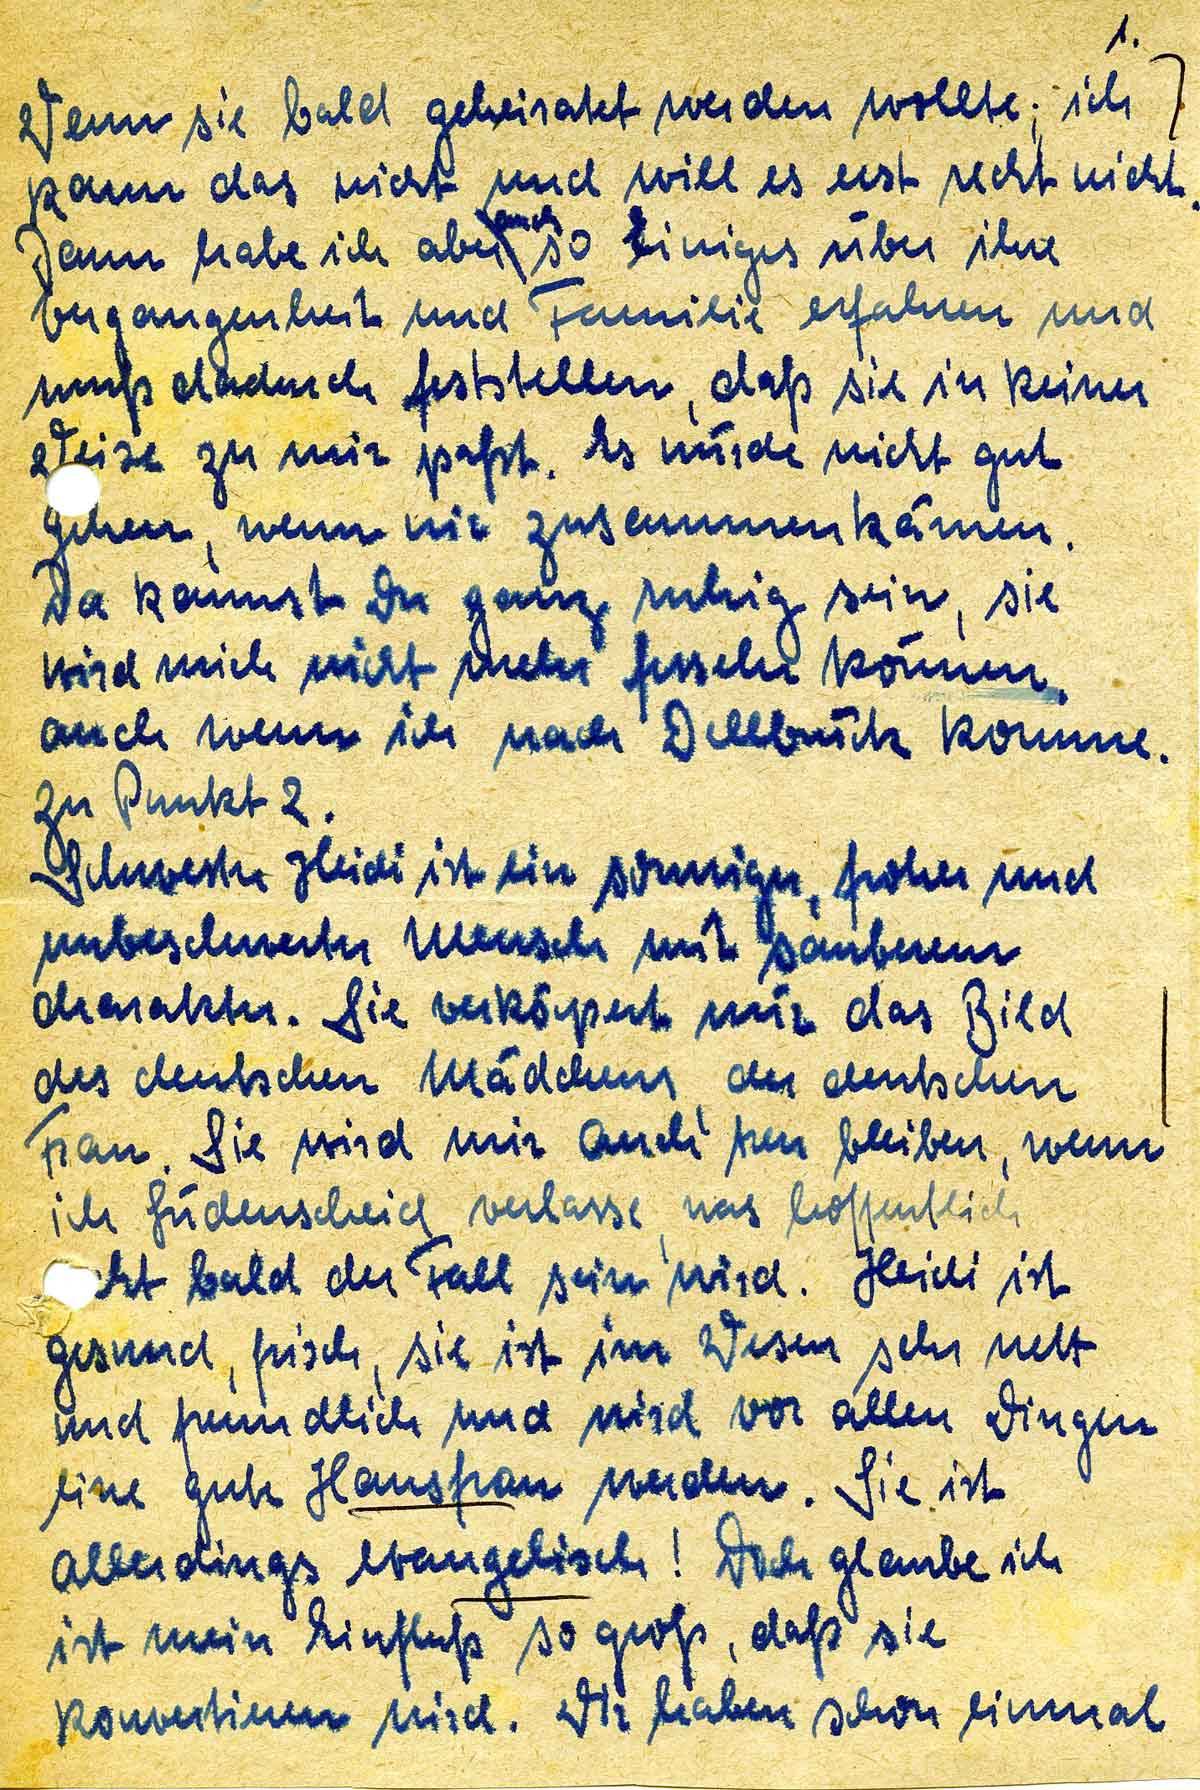 1.
Wenn sie bald geheiratet werden wollte; ich
kann das nicht und will es erst recht nicht.
Dann habe ich aber auch so Einiges über ihre
Vergangenheit und Familie erfahren und
muß dadurch feststellen, daß sie in keiner
Weise zu mir paßt. Es würde nicht gut
gehen, wenn wir zusammenkämen.
Da kannst Du ganz ruhig sein, sie
wird mich nicht mehr fesseln können,
auch wenn ich nach Dellbrück komme.
Zu Punkt 2.
Schwester Heidi ist ein sonniger, froher und
unbeschwerter Mensch mit sauberem
Charakter. Sie verkörpert mir das Bild
des deutschen Mädchens, der deutschen
Frau. Sie wird mir auch treu bleiben, wenn
ich Lüdenscheid verlasse, was hoffentlich
cht bald der Fall sein wird. Heidi ist
gesund, frisch, sie ist im Wesen sehr nett
und freundlich und wird vor allen Dingen
eine gute Hausfrau werden. Sie ist
allerdings evangelisch! Doch glaube ich
ist mein Einfluß so groß, daß sie
konvertieren wird. Wir haben schon einmal